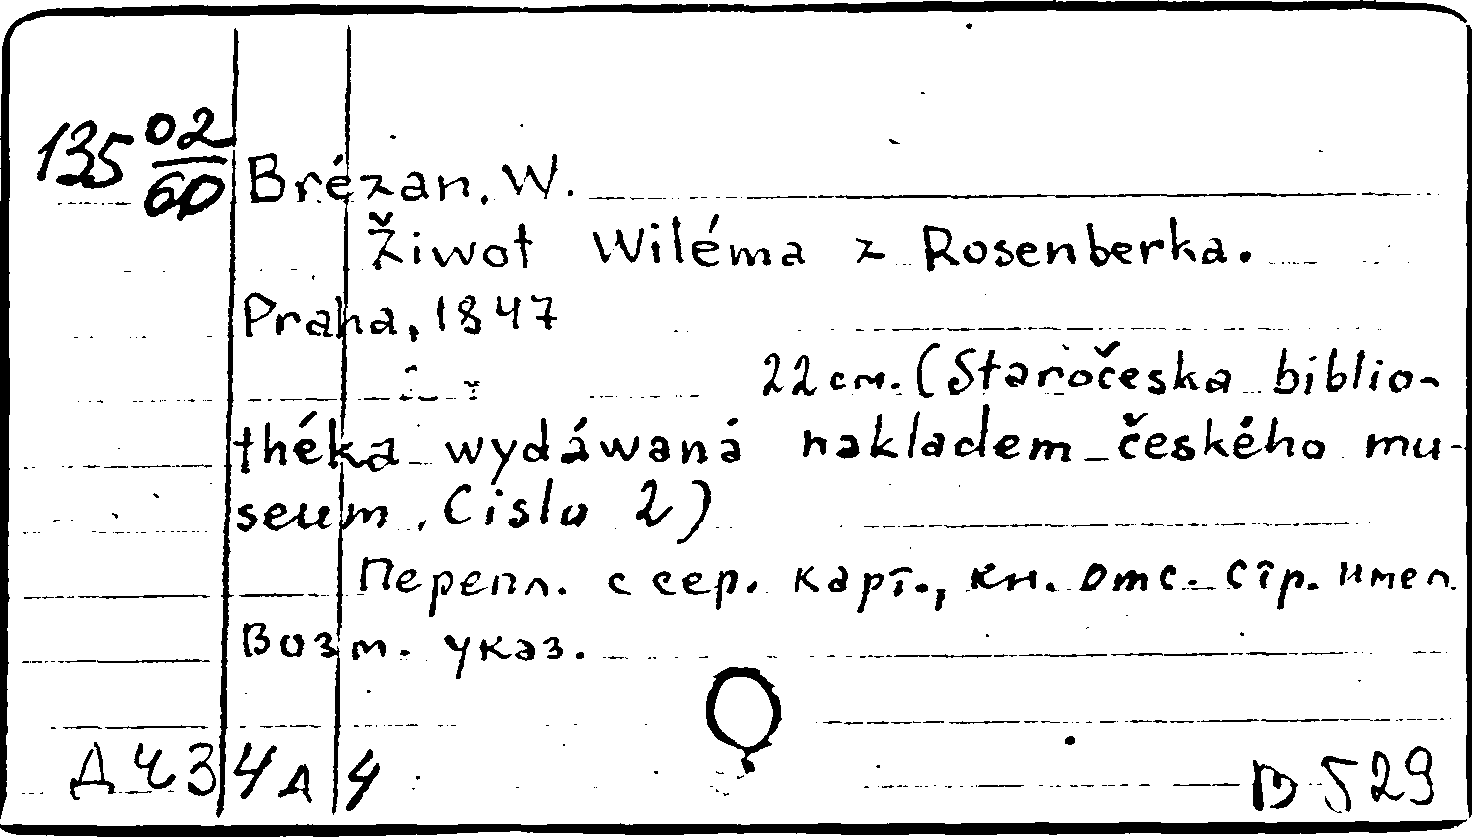 135 02/60 Brézan, W.
Žiwot Wiléma z Rosenberka.
Praha, 1847
22 см. (Staročeska biblio-
théka wydáwaná nakladem českého mu-
seum, Cislo 2)
Перепл. с сер. карт., кн. отс. стр. имел.
Возм. указ.
Д Ч 3 4 А 4
В 529